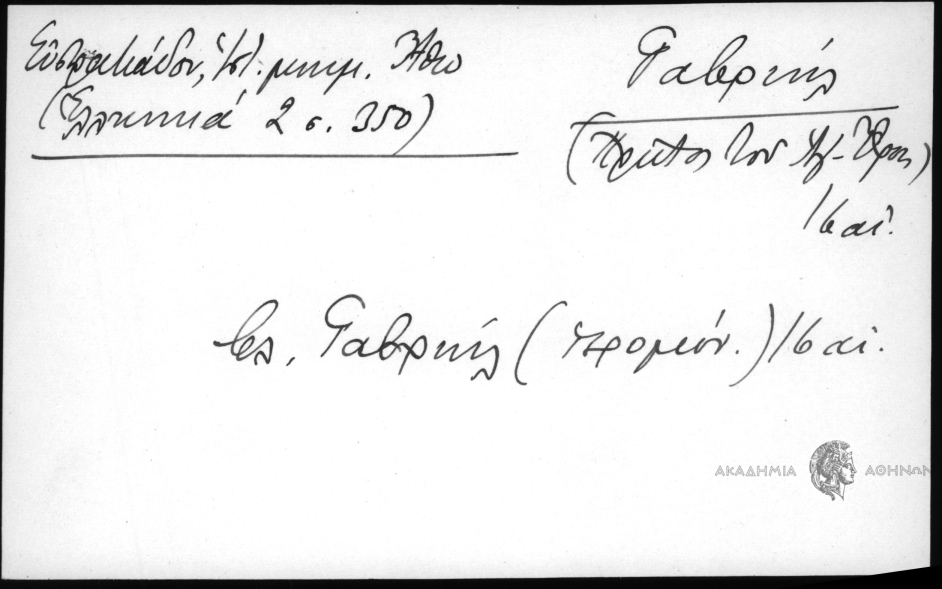 Εὐστρατιάδου, Ἱστ. μνημ. Ἄθω
(Ἑλληνικά 2 σ. 350)
Γαβριήλ
(Πρῶτος τοῦ Ἁγ. Ὄρους)
16 αἰ.
βλ. Γαβριήλ (ἱερομόν.) 16 αἰ.
ΑΚΑΔΗΜΙΑ ΑΘΗΝΩΝ